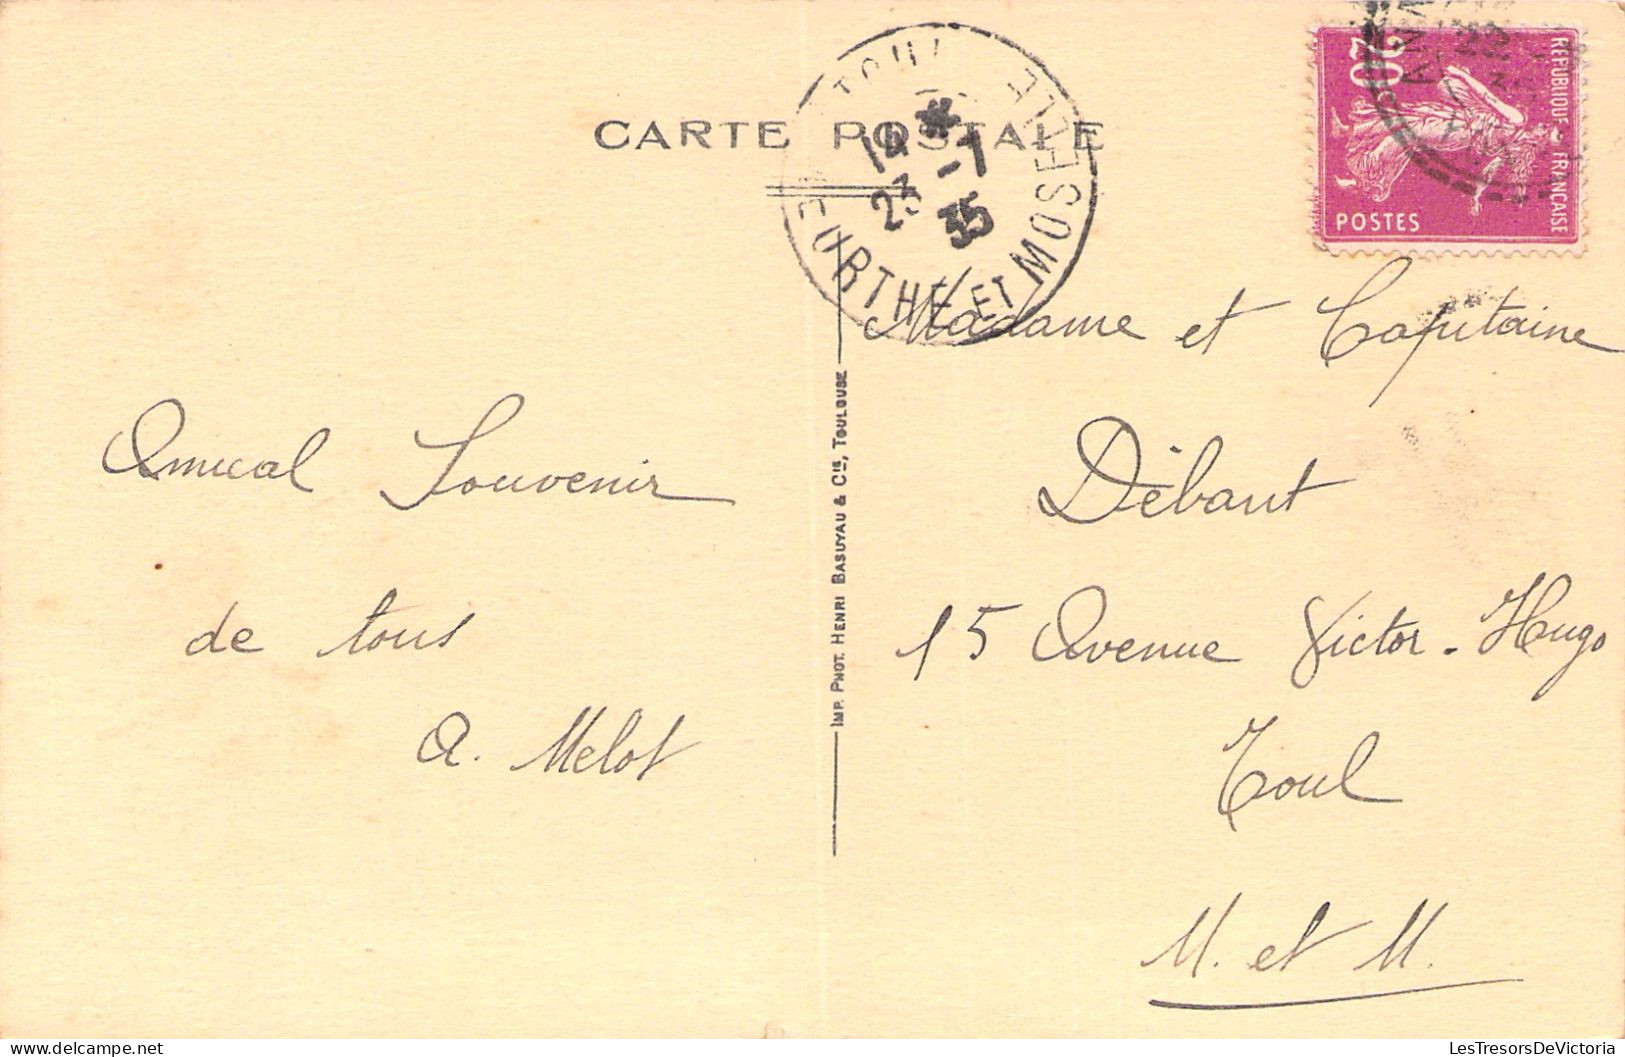 CARTE POSTALE
TOUL
MEURTHE ET MOSELLE
14 *
23 -1
35
20c
REPUBLIQUE FRANÇAISE
POSTES
Amical Souvenir
de tous
A. Melot
IMP. PHOT. HENRI BASUYAU & Cie, TOULOUSE
Madame et Capitaine
Débant
15 Avenue Victor-Hugo
Toul
M. et M.
LesTresorsDeVictoria